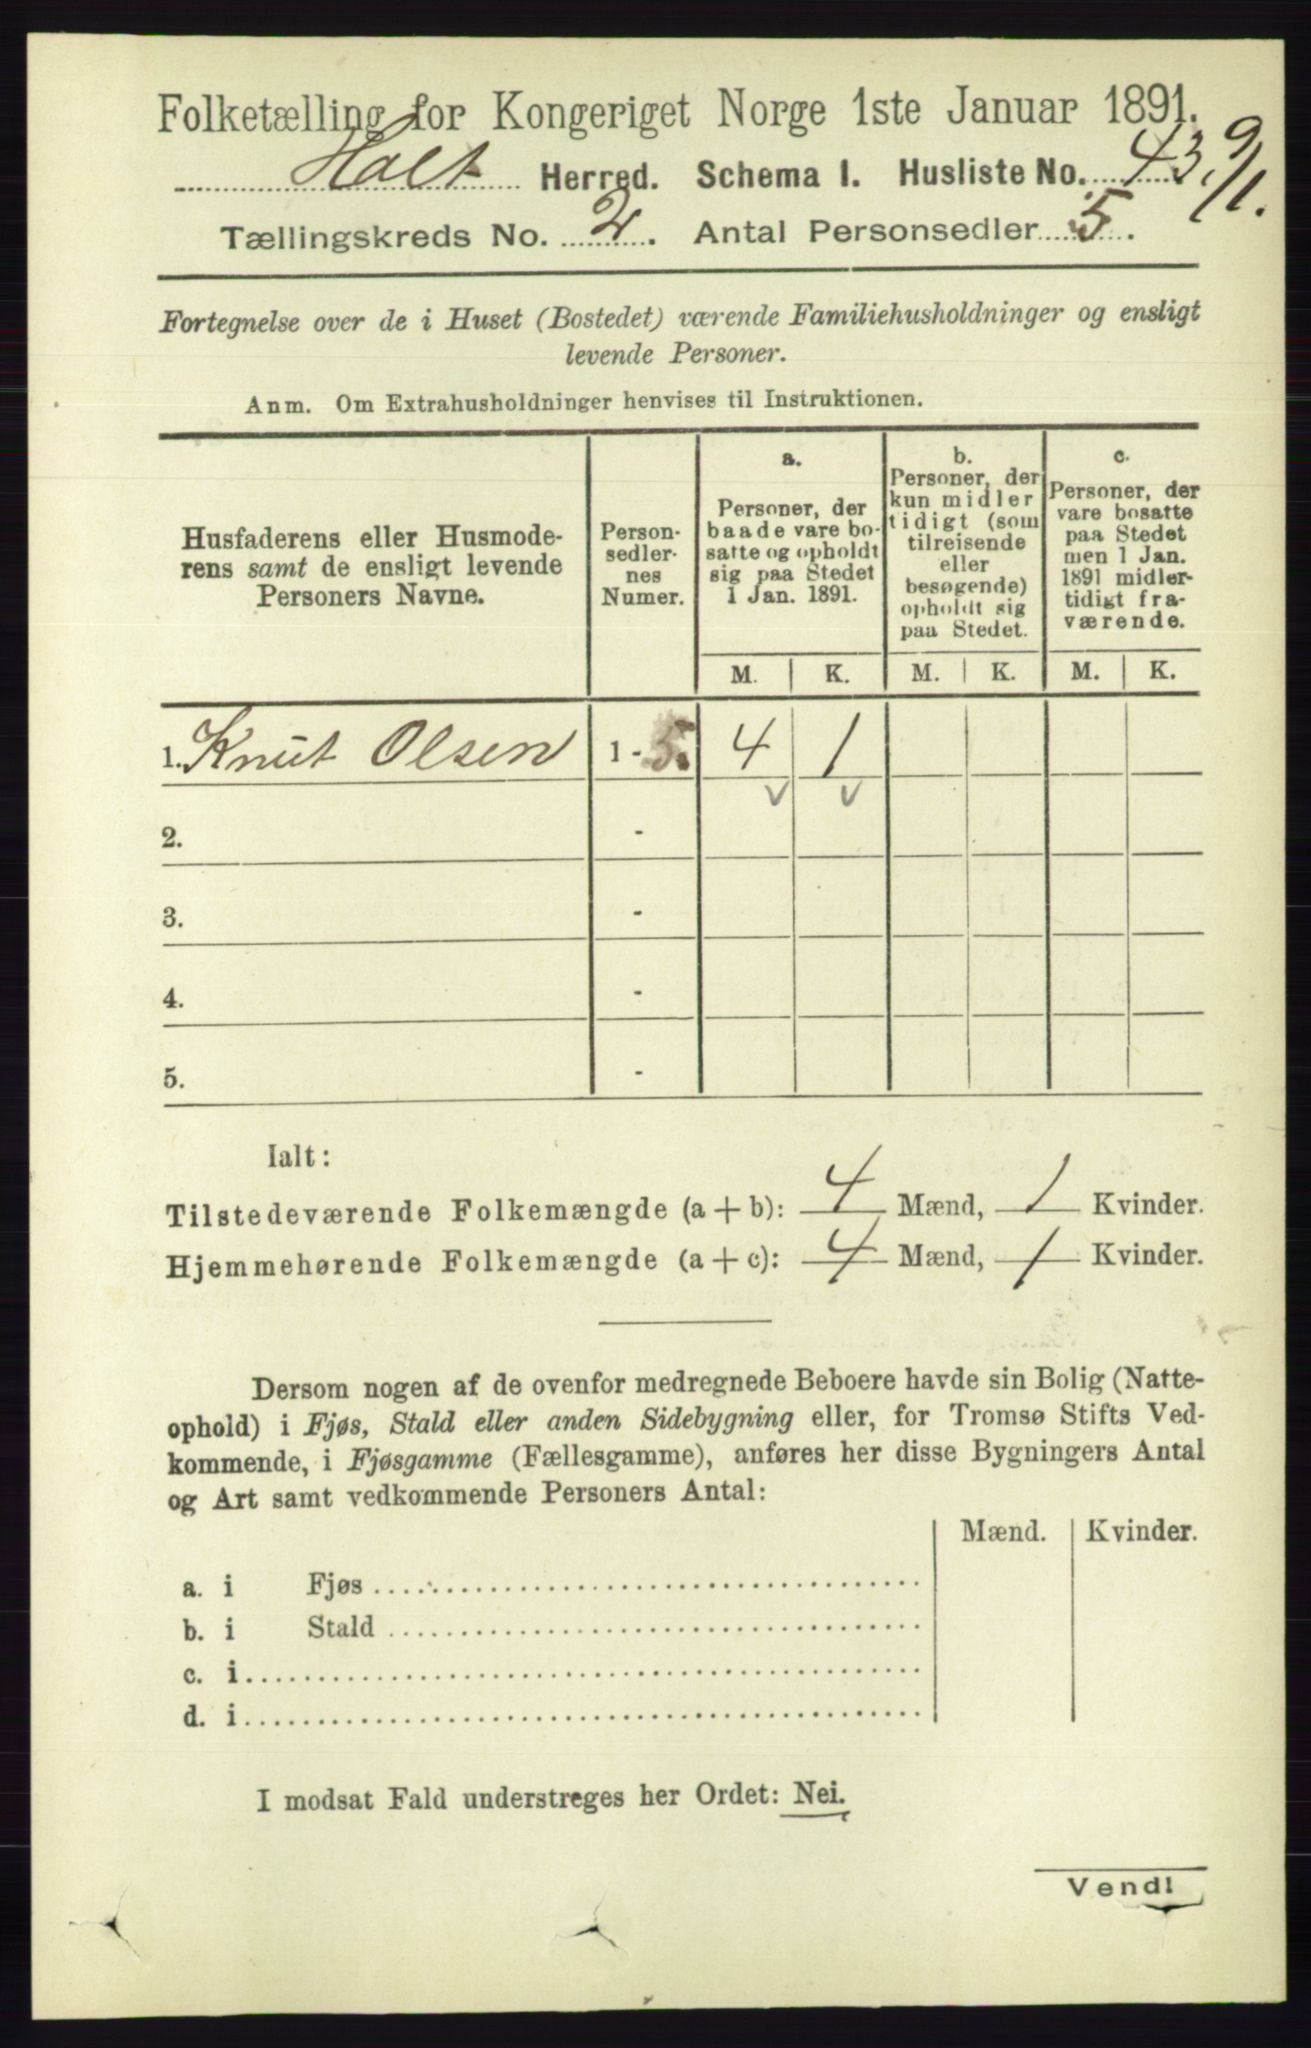 Folketælling for Kongeriget Norge 1ste Januar 1891.
Holt Herred. Schema I. Husliste No. 43. 9/1.
Tællingskreds No. 2. Antal Personsedler 5.
Fortegnelse over de i Huset (Bostedet) værende Familiehusholdninger og ensligt
levende Personer.
Anm. Om Extrahusholdninger henvises til Instruktionen.
Husfaderens eller Husmode-
rens samt de ensligt levende
Personers Navne.
Person-
sedler-
nes
Numer.
a.
Personer, der
baade vare bo-
satte og opholdt
sig paa Stedet
1 Jan. 1891.
b.
Personer, der
kun midler
tidigt (som
tilreisende
eller
besøgende)
opholdt sig
paa Stedet.
c.
Personer, der
vare bosatte
paa Stedet
men 1 Jan.
1891 midler-
tidigt fra-
værende.
M. K. M. K. M. K.
1. Knut Olsen 1 - 5. 4 1
2. -
3. -
4. -
5. -
Ialt:
Tilstedeværende Folkemængde (a + b): 4 Mænd, 1 Kvinder.
Hjemmehørende Folkemængde (a + c): 4 Mænd, 1 Kvinder.
Dersom nogen af de ovenfor medregnede Beboere havde sin Bolig (Natte-
ophold) i Fjøs, Stald eller anden Sidebygning eller, for Tromsø Stifts Ved-
kommende, i Fjøsgamme (Fællesgamme), anføres her disse Bygningers Antal
og Art samt vedkommende Personers Antal:
Mænd. Kvinder.
a. i Fjøs
b. i Stald
c. i
d. i
I modsat Fald understreges her Ordet: Nei.
Vend!